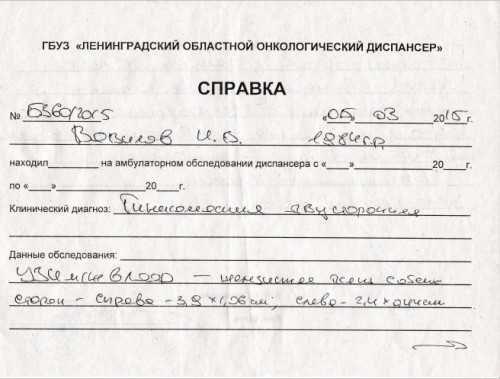 ГБУЗ «ЛЕНИНГРАДСКИЙ ОБЛАСТНОЙ ОНКОЛОГИЧЕСКИЙ ДИСПАНСЕР»
СПРАВКА
№ 5360/2015 «05» 03 2015 г.
И.В. 1984г.р.
находил________ на амбулаторном обследовании диспансера с «____»____________20____г.
по «____»____________20____г.
Клинический диагноз: Гинекомастия двусторонняя
Данные обследования:
УЗИ мж в ЛООД – железистая ткань с обеих
сторон – справа – 3,9 х 1,06 см; слева – 2,4 х